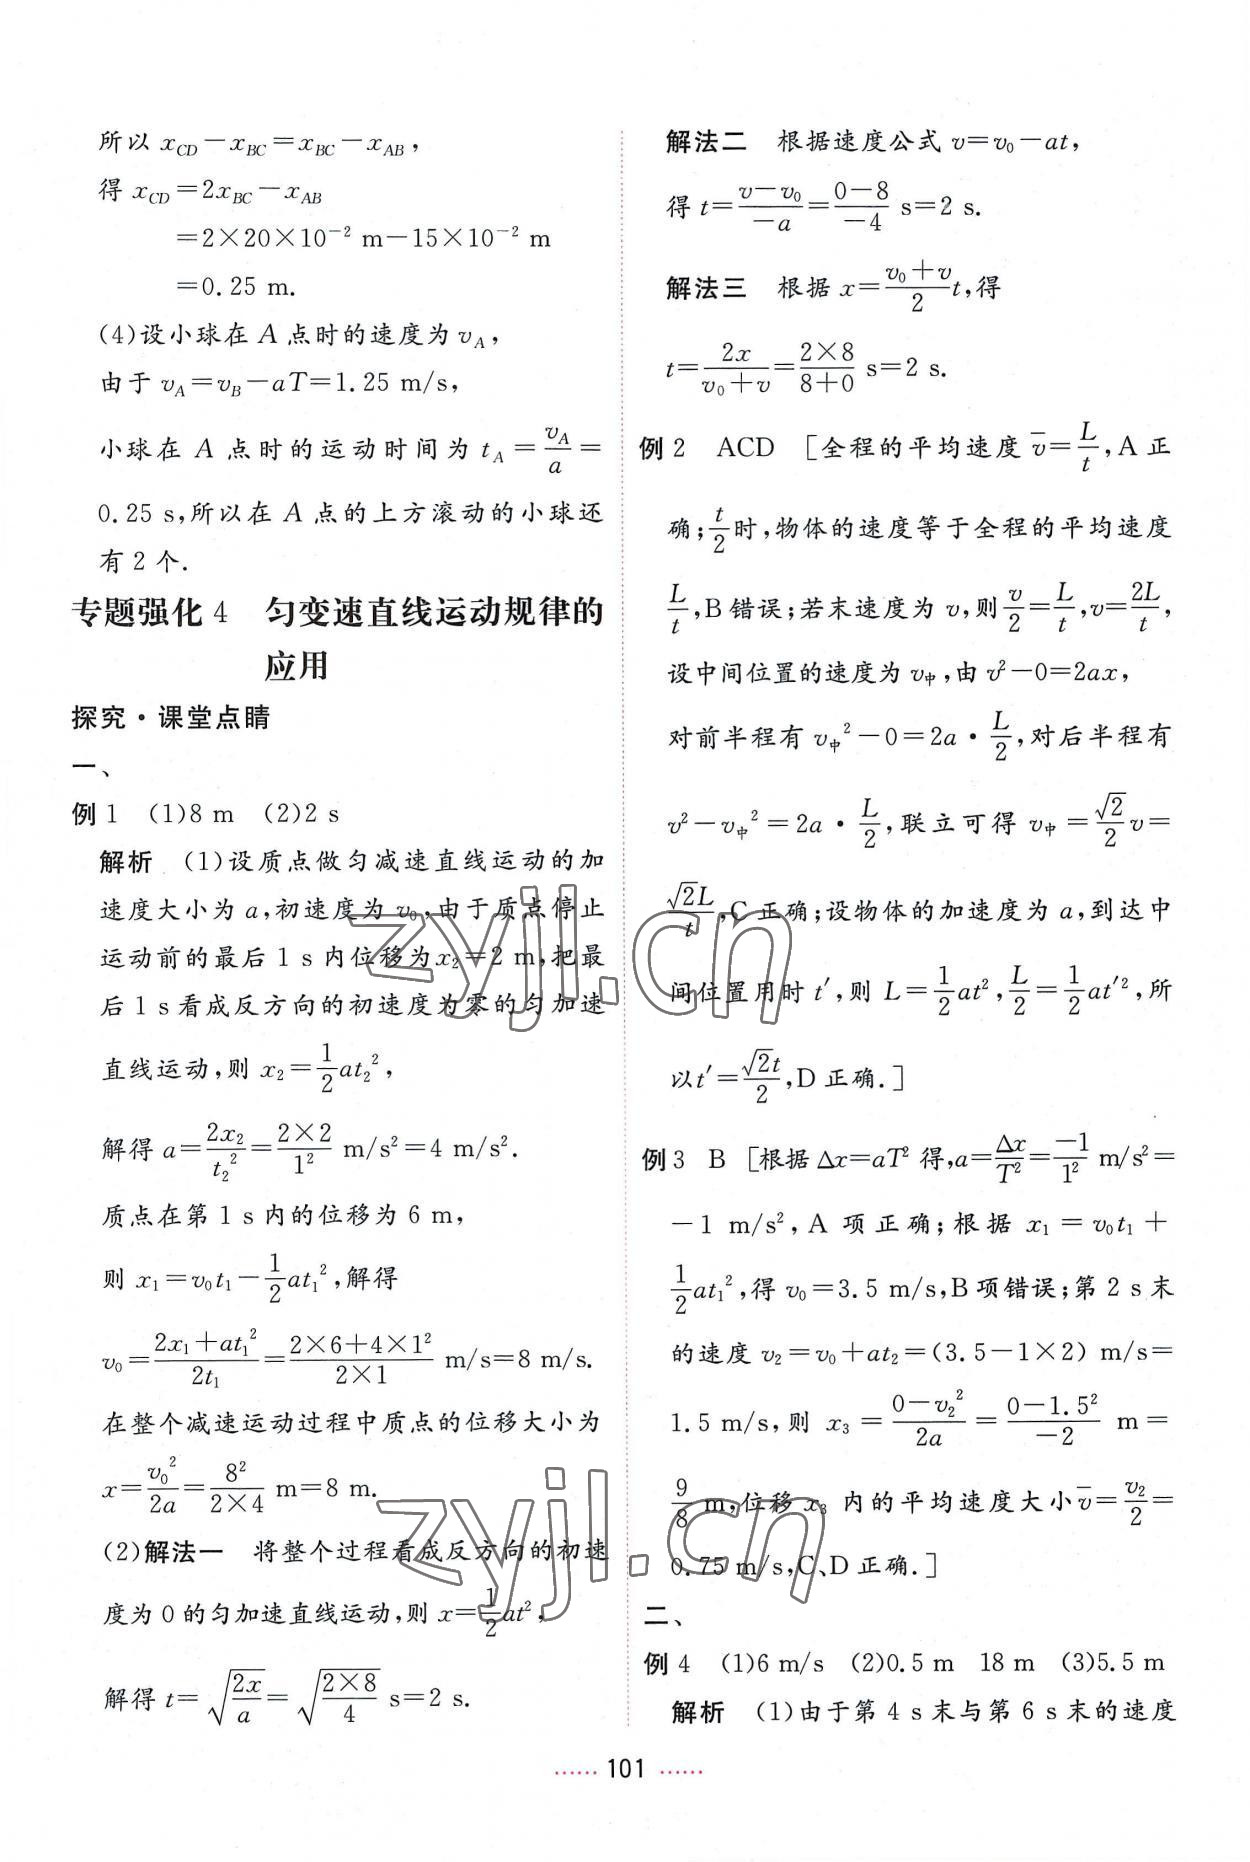 所以 x_CD－x_BC＝x_BC－x_AB，
得 x_CD＝2x_BC－x_AB
＝2×20×10⁻² m－15×10⁻² m
＝0.25 m.
(4)设小球在 A 点时的速度为 v_A，
由于 v_A＝v_B－aT＝1.25 m/s，
小球在 A 点时的运动时间为 t_A＝v_A/a＝
0.25 s,所以在 A 点的上方滚动的小球还
有 2 个.
专题强化 4　匀变速直线运动规律的
应用
探究·课堂点睛
一、
例 1　(1)8 m　(2)2 s
解析　(1)设质点做匀减速直线运动的加
速度大小为 a,初速度为 v₀,由于质点停止
运动前的最后 1 s 内位移为 x₂＝2 m,把最
后 1 s 看成反方向的初速度为零的匀加速
直线运动,则 x₂＝1/2 at₂²，
解得 a＝2x₂/t₂²＝2×2/1² m/s²＝4 m/s².
质点在第 1 s 内的位移为 6 m，
则 x₁＝v₀t₁－1/2 at₁²,解得
v₀＝(2x₁＋at₁²)/2t₁＝(2×6＋4×1²)/(2×1) m/s＝8 m/s.
在整个减速运动过程中质点的位移大小为
x＝v₀²/2a＝8²/(2×4) m＝8 m.
(2)解法一　将整个过程看成反方向的初速
度为 0 的匀加速直线运动,则 x＝1/2 at²，
解得 t＝√(2x/a)＝√(2×8/4) s＝2 s.
解法二　根据速度公式 v＝v₀－at，
得 t＝(v－v₀)/－a＝(0－8)/－4 s＝2 s.
解法三　根据 x＝(v₀＋v)/2 t,得
t＝2x/(v₀＋v)＝(2×8)/(8＋0) s＝2 s.
例 2　ACD　[全程的平均速度 v̄＝L/t,A 正
确；t/2时,物体的速度等于全程的平均速度
L/t,B 错误；若末速度为 v,则 v/2＝L/t,v＝2L/t，
设中间位置的速度为 v中,由 v²－0＝2ax，
对前半程有 v中²－0＝2a·L/2,对后半程有
v²－v中²＝2a·L/2,联立可得 v中＝√2/2 v＝
√2L/t,C 正确；设物体的加速度为 a,到达中
间位置用时 t′,则 L＝1/2 at²,L/2＝1/2 at′²,所
以 t′＝√2t/2,D 正确.]
例 3　B　[根据 Δx＝aT² 得,a＝Δx/T²＝－1/1² m/s²＝
－1 m/s²,A 项正确；根据 x₁＝v₀t₁＋
1/2 at₁²,得 v₀＝3.5 m/s,B 项错误；第 2 s 末
的速度 v₂＝v₀＋at₂＝(3.5－1×2) m/s＝
1.5 m/s,则 x₃＝(0－v₂²)/2a＝(0－1.5²)/－2 m＝
9/8 m,位移 x₃ 内的平均速度大小 v̄＝v₂/2＝
0.75 m/s,C、D 正确.]
二、
例 4　(1)6 m/s　(2)0.5 m　18 m　(3)5.5 m
解析　(1)由于第 4 s 末与第 6 s 末的速度
······ 101 ······
zyjl.cn
zyjl.cn